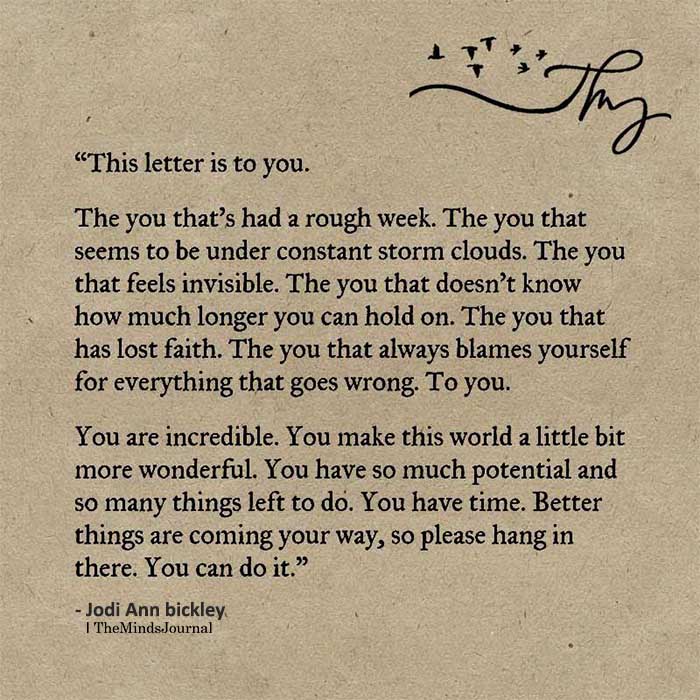 Thy
“This letter is to you.
The you that’s had a rough week. The you that
seems to be under constant storm clouds. The you
that feels invisible. The you that doesn’t know
how much longer you can hold on. The you that
has lost faith. The you that always blames yourself
for everything that goes wrong. To you.
You are incredible. You make this world a little bit
more wonderful. You have so much potential and
so many things left to do. You have time. Better
things are coming your way, so please hang in
there. You can do it.”
- Jodi Ann bickley
| TheMindsJournal